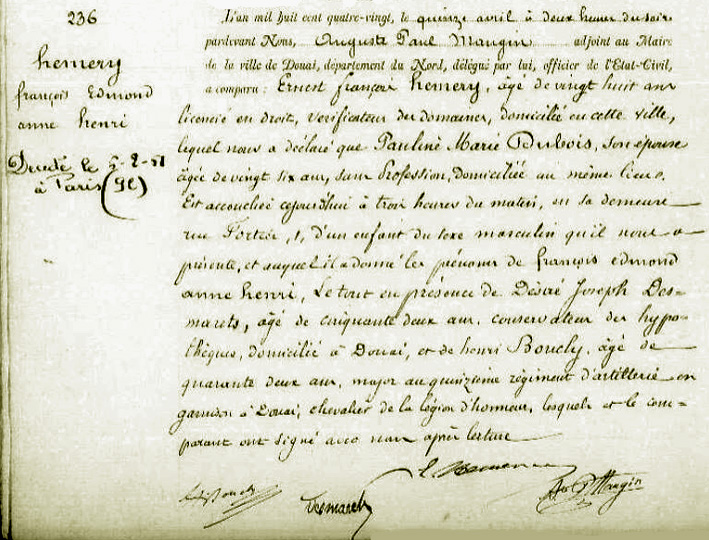 236
hemery
françois Edmond
anne henri
Décédé le 5-2-51
à Paris (9e)
L'an mil huit cent quatre-vingt, le quinze avril à deux heures du soir
pardevant Nous, Auguste Paul Mangin adjoint au Maire
de la ville de Douai, département du Nord, délégué par lui, officier de l'Etat-Civil,
a comparu : Ernest françois hemery, âgé de vingt huit ans
licencié en droit, vérificateur des domaines, domicilié en cette ville,
lequel nous a déclaré que Pauline Marie Dubois, son épouse
âgée de vingt six ans, sans Profession, Domiciliée au même lieu,
Est accouchée cejourd'hui à trois heures du matin, en sa demeure
rue Fortier, 1, d'un enfant du sexe masculin qu'il nous a
présenté, et auquel il a donné les prénoms de françois edmond
anne henri, Le tout en présence de Désiré Joseph Des=
marets, âgé de cinquante deux ans, conservateur des hypo=
thèques, domicilié à Douai, et de henri Bouchy, âgé de
quarante deux ans, major au quinzième régiment d'artillerie en
garnison à Douai, chevalier de la légion d'honneur, lesquels et le com=
parant ont signé avec nous après lecture
Desmarets
Mangin